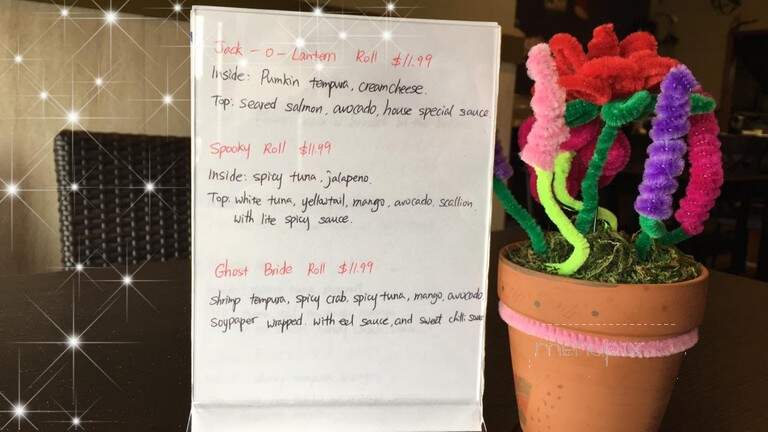 Jack-o-Lantern Roll $11.99
Inside: Pumkin tempura, creamcheese.
Top: seared salmon, avocado, house special sauce
Spooky Roll $11.99
Inside: spicy tuna, jalapeno.
Top: white tuna, yellowtail, mango, avocado, scallion
with lite spicy sauce.
Ghost Bride Roll $11.99
shrimp tempura, spicy crab, spicy tuna, mango, avocado
soypaper wrapped. with eel sauce, and sweet chili sauce
menupix